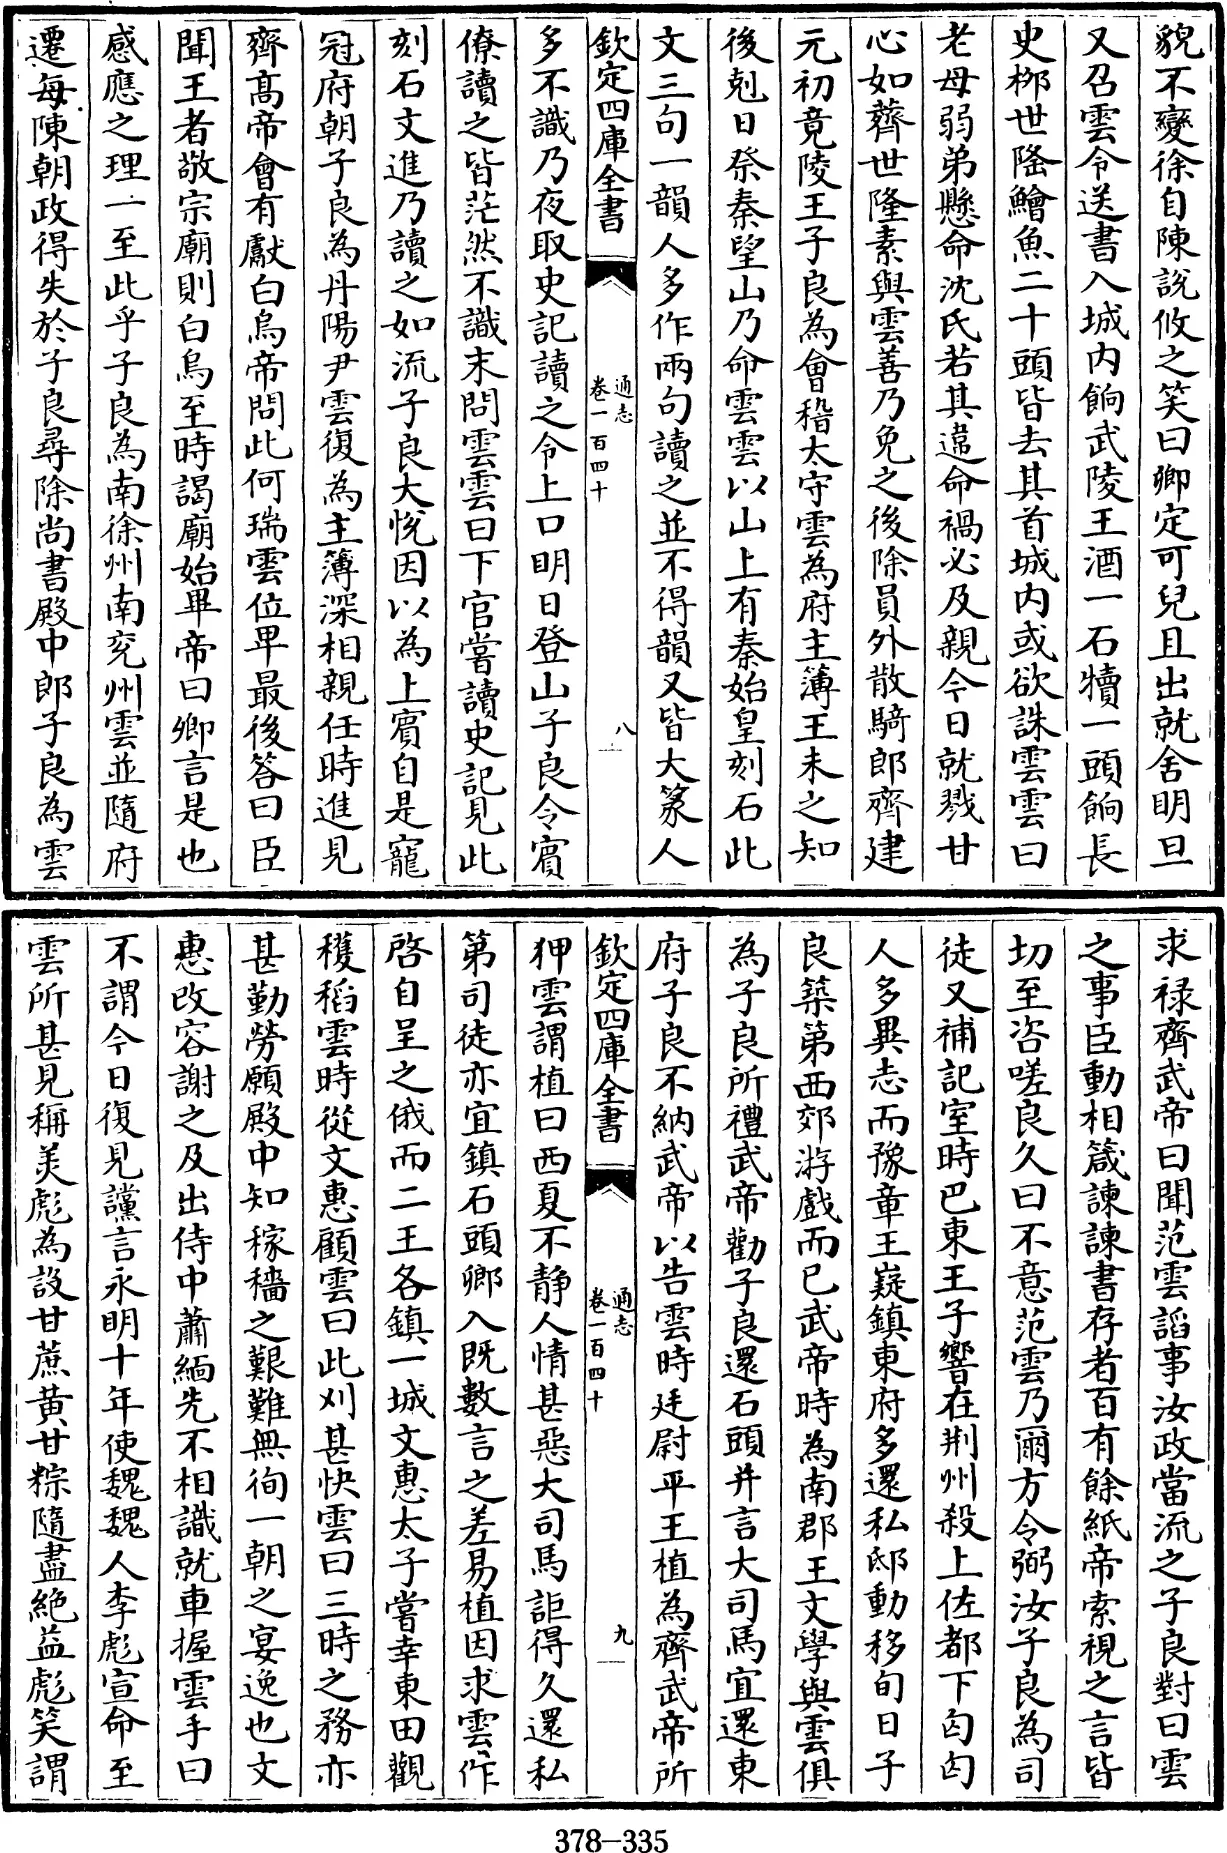 貌不變徐自陳說攸之笑曰卿定可兒且出就舍明旦
又召雲令送書入城内餉武陵王酒一石犢一頭餉長
史栁世隆鱠魚二十頭皆去其首城内或欲誅雲雲曰
老母弱弟懸命沈氏若其違命禍必及親今日就戮甘
心如薺世隆素與雲善乃免之後除員外散騎郎齊建
元初竟陵王子良為會稽太守雲為府主簿王未之知
後剋日祭秦望山乃命雲雲以山上有秦始皇刻石此
文三句一韻人多作兩句讀之並不得韻又皆大篆人
欽定四庫全書
通志
卷一百四十
八
多不識乃夜取史記讀之令上口明日登山子良令賓
僚讀之皆茫然不識末問雲雲曰下官嘗讀史記見此
刻石文進乃讀之如流子良大悅因以為上賓自是寵
冠府朝子良為丹陽尹雲復為主簿深相親任時進見
齊髙帝會有獻白烏帝問此何瑞雲位卑最後答曰臣
聞王者敬宗廟則白烏至時謁廟始畢帝曰卿言是也
感應之理一至此乎子良為南徐州南兖州雲並隨府
遷每陳朝政得失於子良尋除尚書殿中郎子良為雲
求禄齊武帝曰聞范雲謟事汝政當流之子良對曰雲
之事臣動相箴諫諫書存者百有餘紙帝索視之言皆
切至咨嗟良久曰不意范雲乃爾方令弼汝子良為司
徒又補記室時巴東王子響在荆州殺上佐都下匈匈
人多異志而豫章王嶷鎮東府多還私邸動移旬日子
良築第西郊游戲而已武帝時為南郡王文學與雲俱
為子良所禮武帝勸子良還石頭并言大司馬宜還東
府子良不納武帝以告雲時廷尉平王植為齊武帝所
欽定四庫全書
通志
卷一百四十
九
狎雲謂植曰西夏不静人情甚惡大司馬詎得久還私
第司徒亦宜鎮石頭卿入既數言之差易植因求雲作
啓自呈之俄而二王各鎮一城文惠太子嘗幸東田觀
穫稻雲時從文惠顧雲曰此刈甚快雲曰三時之務亦
甚勤勞願殿中知稼穡之艱難無徇一朝之宴逸也文
惠改容謝之及出侍中蕭緬先不相識就車握雲手曰
不謂今日復見讜言永明十年使魏魏人李彪宣命至
雲所甚見稱羙彪為設甘蔗黄甘粽隨盡絶益彪笑謂
378-335